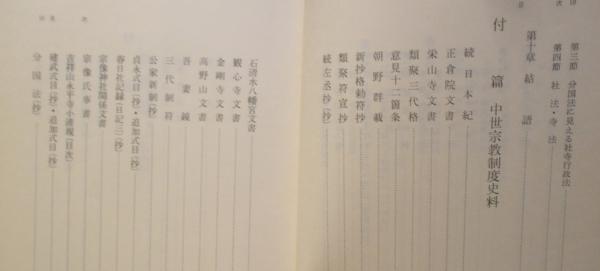 第三節 分国法に見える社寺行政法
第四節 社法・寺法
第十章 結語
付篇 中世宗教制度史料
続日本紀
正倉院文書
類聚三代格
栄山寺文書
意見十二箇条
朝野群載
新抄格勅符抄
類聚符宣抄
続左丞抄(抄)
石清水八幡宮文書
観心寺文書
金剛寺文書
高野山文書
吾妻鏡
三代制符
公家新制(抄)
貞永式目(抄)・追加式目(抄)
春日社記録(日記三)(抄)
宗像神社関係文書
宗像氏事書
吉祥山永平寺小清規(目次)
建武式目(抄)・追加式目(抄)
分国法(抄)